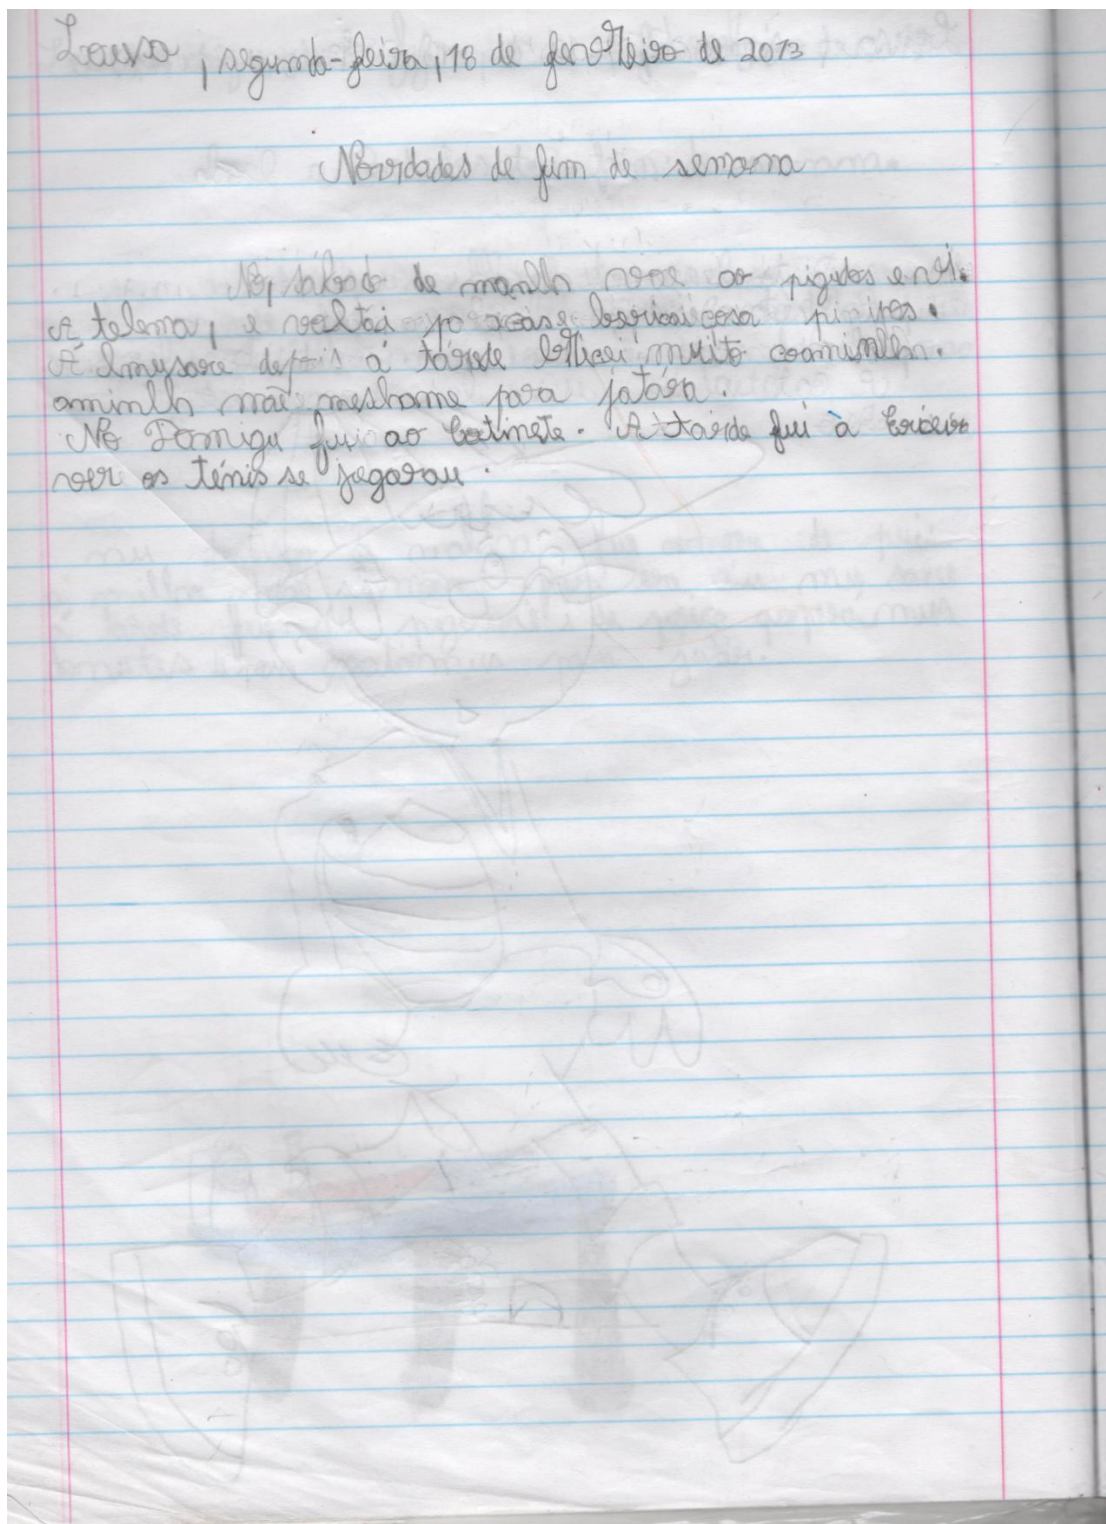 Lousa, segunda-feira, 18 de fevereiro de 2013
Novidades de fim de semana
No, sábado de manlh voue ao pigudos e vi.
A telema, e voltai po casa e bericai cosa pirires.
A lmusore depois á tárde bricai muito coaminlh.
aminlh mãe meshome para jatára.
No Domigu fui ao batinete. A tarde fui à Ericeira
ver os ténis se jogarau.